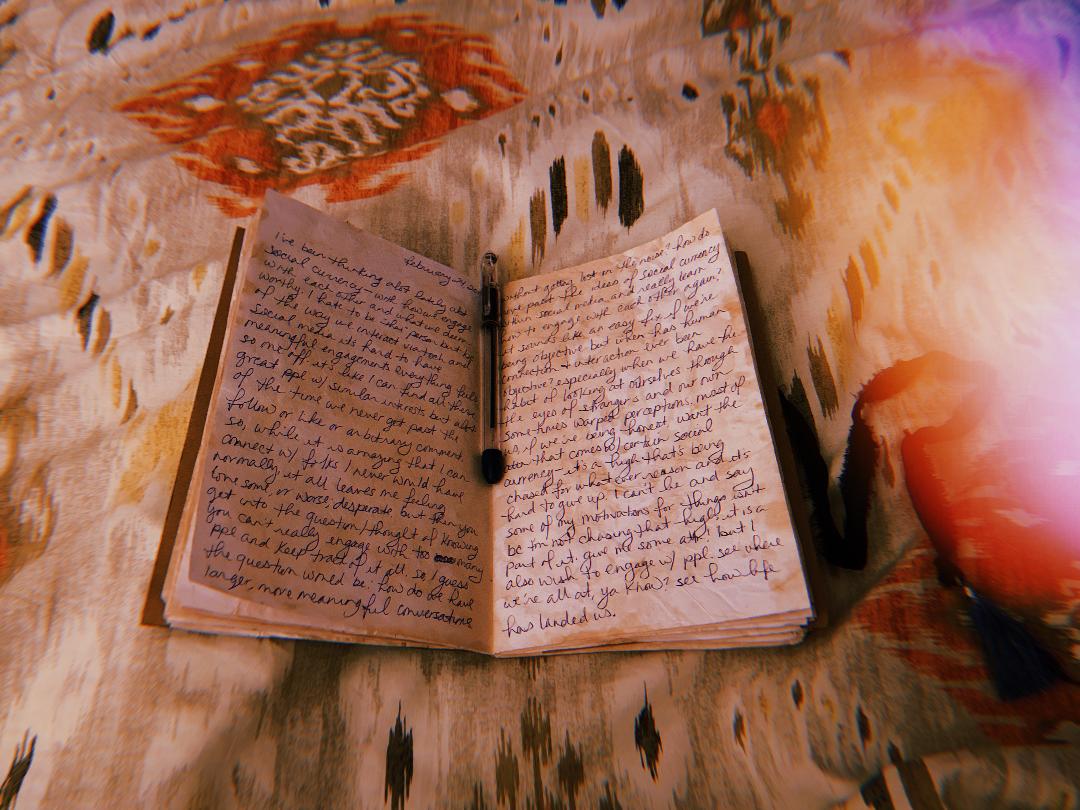 February 24, 20
I've been thinking alot lately abt
social currency - with how we engage
with each other and what we deem
worthy. I hate to be "that" person but b/c
of the way we interact w/ tech and
social media it's hard to have
meaningful engagements. everything feels
so one off. it's like I can find all these
great ppl w/ similar interests but alot
of the time we never get past the
follow or like or arbitrary comment.
so, while it is amazing that I can
connect w/ folks I never would have
normally it all leaves me feeling
lonesome, or worse; desperate. but then you
get into the question/thought of knowing
you can't really engage with too many
ppl and keep track of it all so I guess
the question would be: how do we have
longer, more meaningful conversations
without getting lost in the noise? how do
we get past the ideas of social currency
within social media and really learn
how to engage with each other again?
it sounds like an easy fix if we're
being objective but when has human
connection & interaction ever been
objective? especially when we have the
habit of looking at ourselves through
the eyes of strangers and our own
sometimes warped perceptions. most of
us, if we're being honest, want the
attn that comes w/ certain social
currency - it's a high that's being
chased for whatever reason and it's
hard to give up. I can't lie and say
some of my motivations for things isn't
b/c I'm not chasing that high. it is a
part of it. give me some attn! but I
also wish to engage w/ ppl. see where
we're all at, ya know? see how life
has landed us.